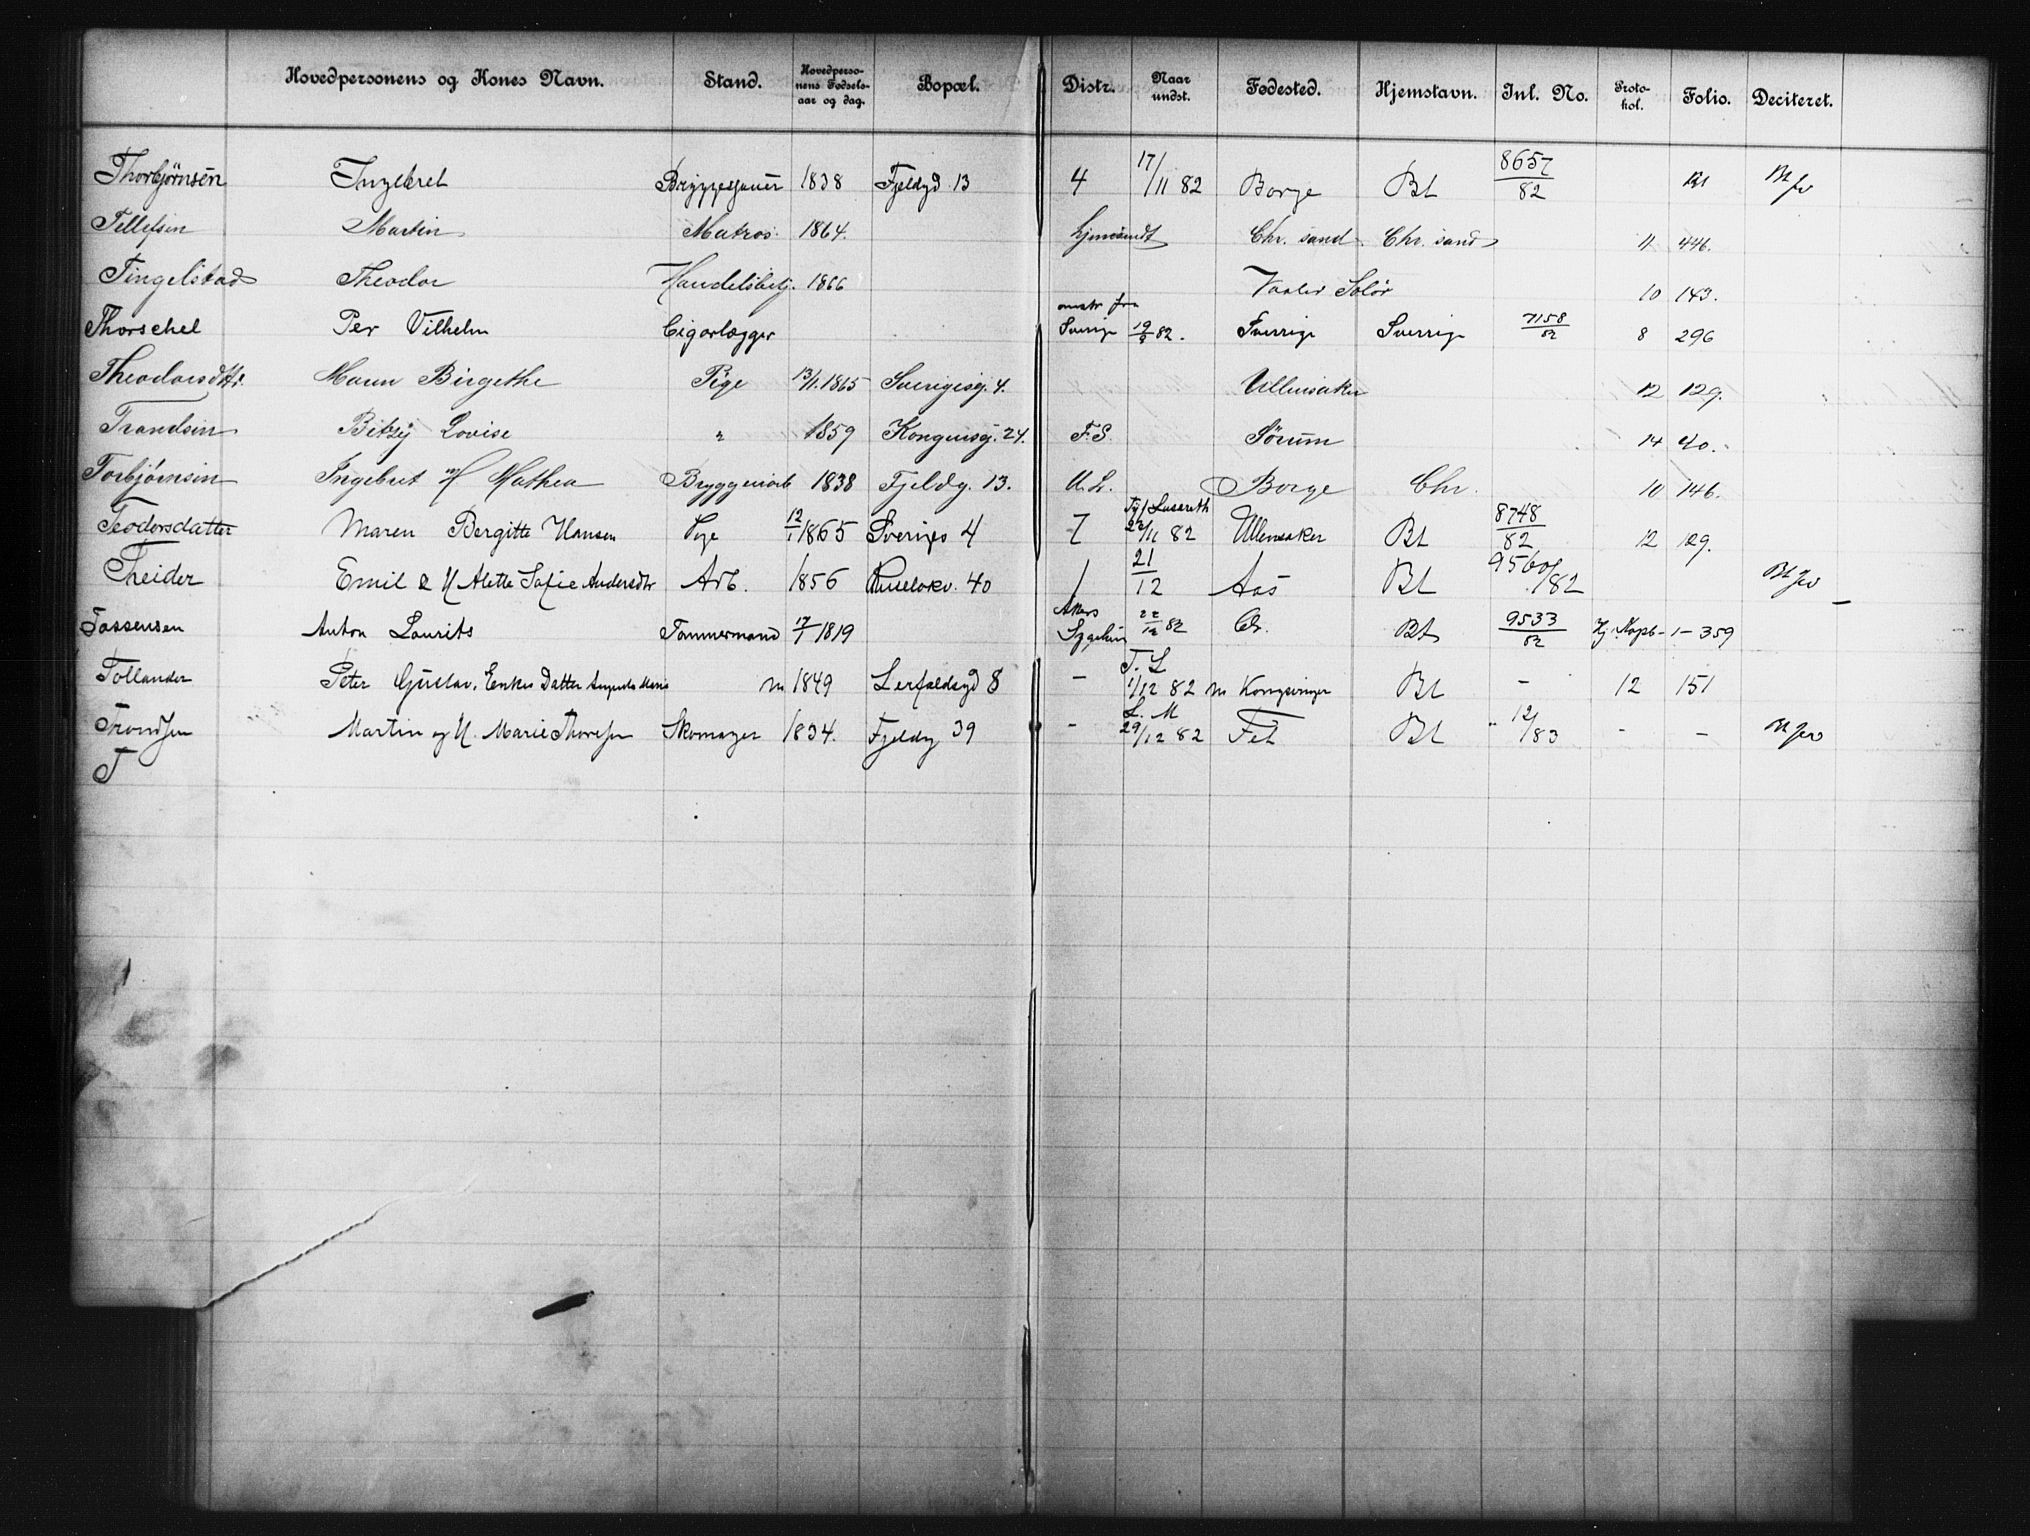 Hovedpersonens og Kones Navn. Stand. Hovedperso-nens Fødsels-aar og dag. Bopæl. Distr. Naar undst. Fødested. Hjemstavn. Inl. No. Proto-kol. Folio. Deciteret.
Thorbjørnsen Ingebret 1838 Fjeldgd 13 4 17/11 82 Borge Bt 8657/82 Bt
Tellefsen Martin Matros. 1864. Chr. sand Chr. sand 11 446.
Tingelstad Theodor Handelsbetj. 1866 Vaaler Solør 10 143.
Thorschel Per Vilhelm Cigarlægger omstr fra Sverige 19/8 82. Sverrige Sverrige 7158/82 8 296
Theodorsdttr. Maren Birgethe Pige 13/1. 1865 Sverigesg. 4. Ullensaker 12 129.
Trandsen Betzy Lovise " 1859 Kongensg. 24. F.S. Sørum 14 40.
Torbjørnsen Ingebret M Mathea Bryggeriarb 1838 Fjeldg. 13. U.L. Borge Chr. 10 146.
Teodorsdatter Maren Bergitte Hansen Pige 12/1 1865 Sveriges 4 7 22/11 82 Ullensaker Bt 8748/82 12 129.
Theider Emil & H Alette Sofie Andersdtr Arb. 1856 Ruseløkv. 40 1 21/12 Aas Bt 9560/82 Bt
Tassensen Anton Laurits Tømmermand 17/1 1819 Akers Sygehus 22/12 82 Chr. Bt 9533/82 1 - 359
Tollander Peter Gustav. Enkes Datter Augusta Maria m 1849 Lerfaldsgd 8 - T. L 1/12 82 m Kongsvinger Bt - 12 151
Trondsen Martin og H. Marie Thoresen Skomager 1834. Fjeldg 39 - L. M 29/12 82 Fet Bt 12/83 - - Bt
T